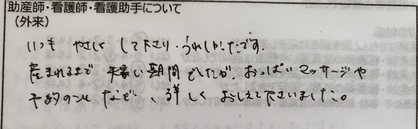 助産師・看護師・看護助手について
(外来)
いつも やさしく して下さり、うれしかったです。
産まれるまで 短い期間 でしたが、おっぱいマッサージや
予約のコト など、詳しく おしえて下さいました。